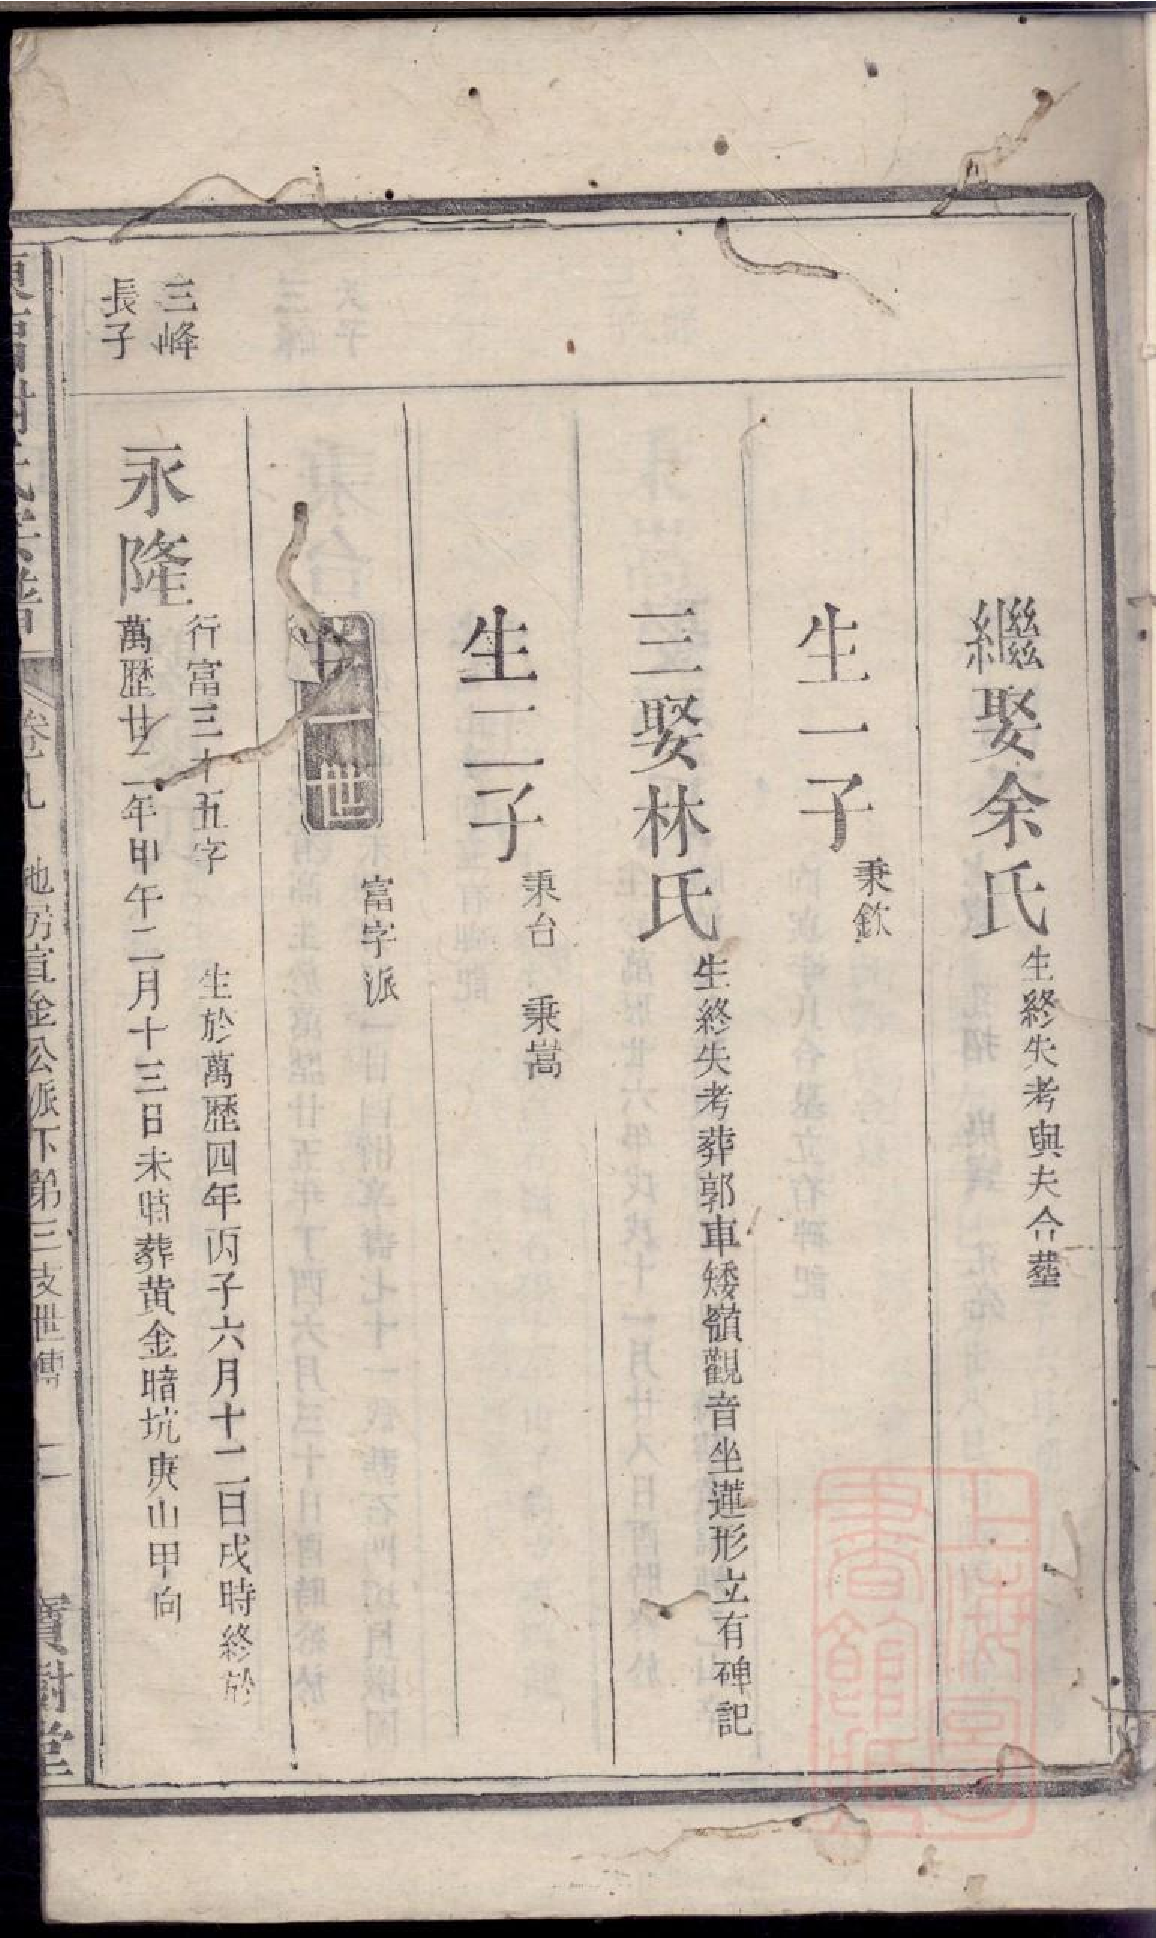 繼娶余氏生終失考與夫合墓
生一子秉欽
三娶林氏生終失考葬郭車矮嶺觀音坐蓮形立有碑記
生二子秉台 秉嵩
十一世富字派
三峰
長子
永隆
行富三十五字 生於萬歷四年丙子六月十二日戌時終於
萬歷廿二年甲午二月十三日未時葬黃金暗坑庚山甲向
卷九 地房宣金公派下第三支世傳
寶樹堂
上海圖書館藏